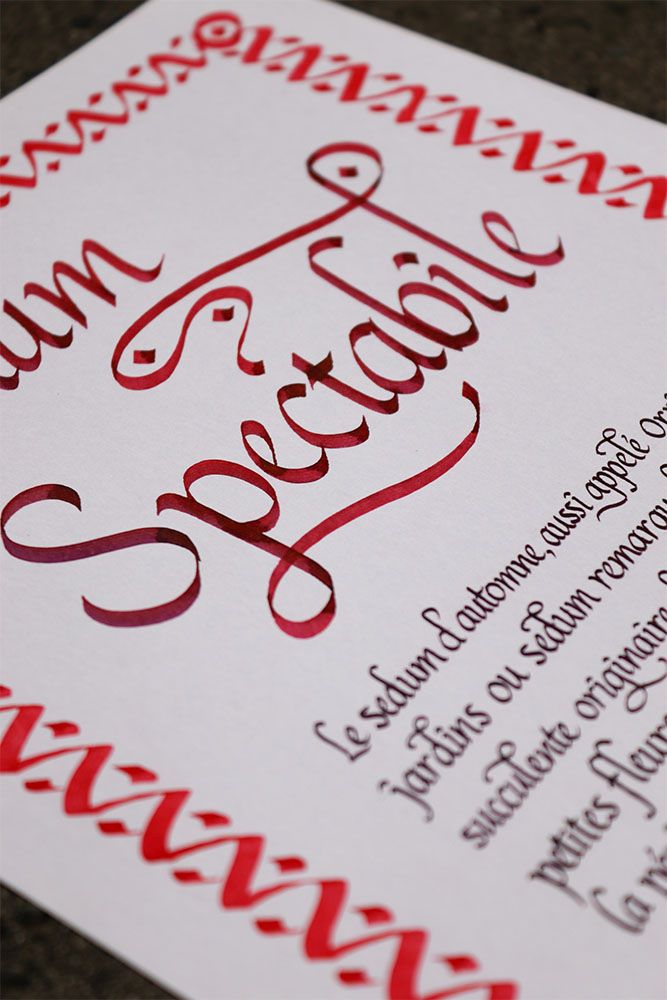 um
Spectabile
Le sedum d'automne, aussi appelé
jardins ou sedum
succulente originaire
petites
la